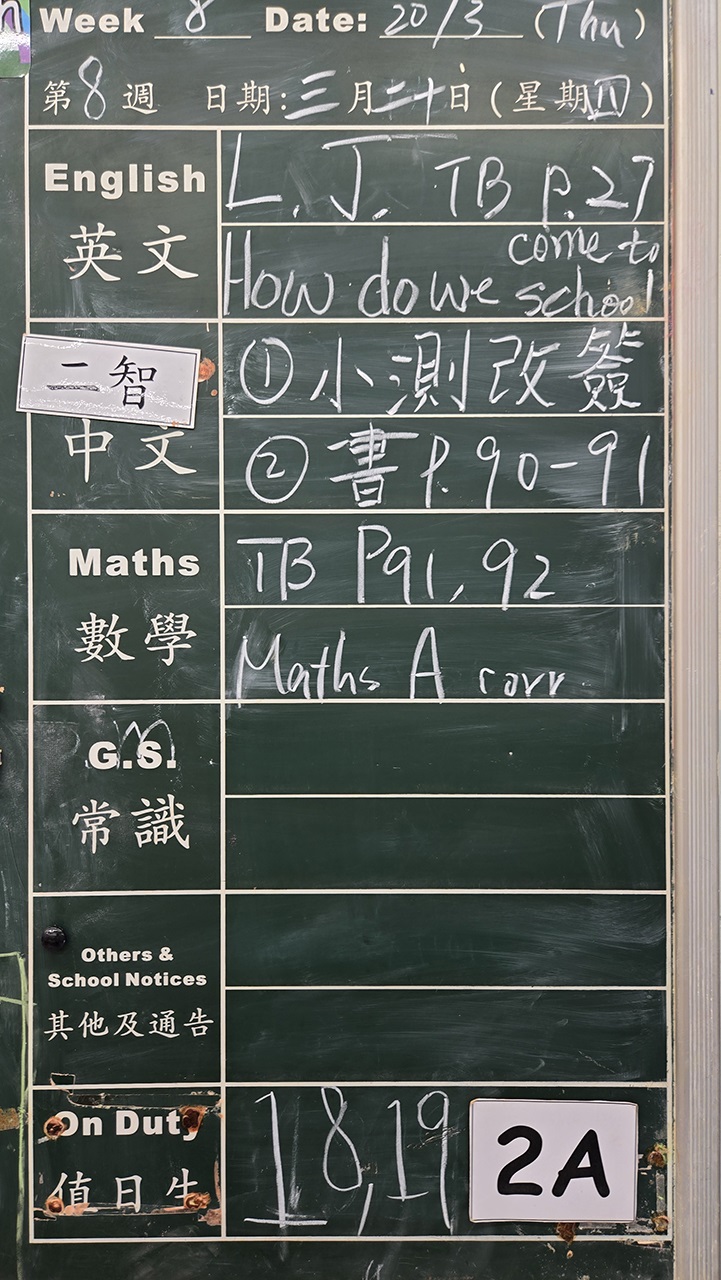 Week 8 Date: 20/3 (Thu)
第8週 日期:三月二十日(星期四)
English L.J. TB p.27
英文 How do we come to school
二智
中文
①小測改簽
②書P.90-91
Maths TB P91, 92
數學 Maths A corr
G.S.
常識
Others &
School Notices
其他及通告
On Duty
值日生
18,19
2A